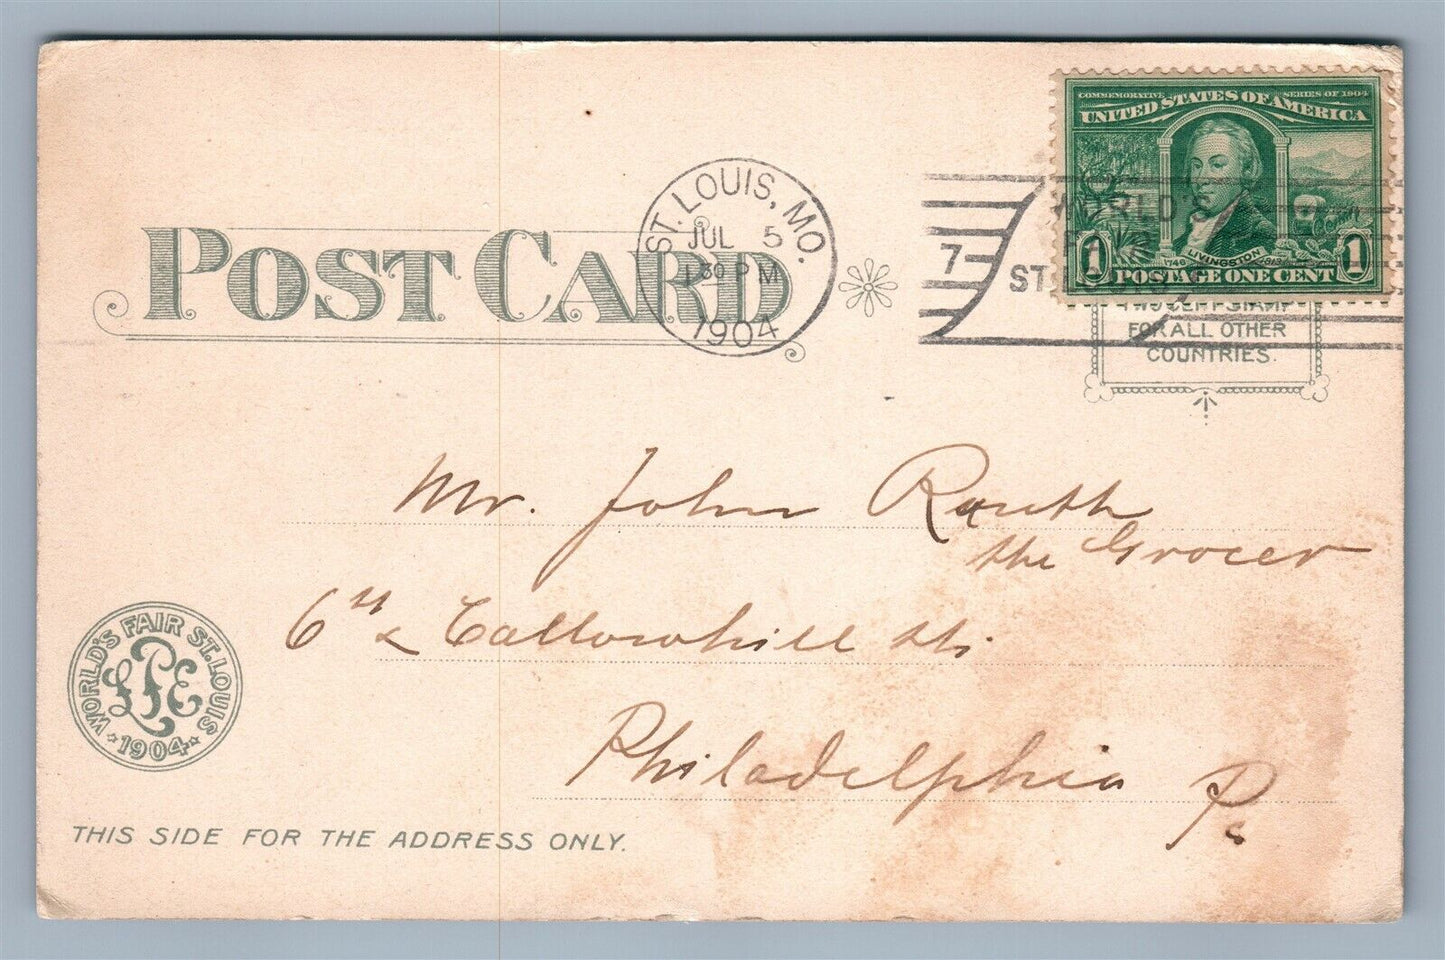 COMMEMORATIVE SERIES OF 1904
UNITED STATES OF AMERICA
1748 LIVINGSTON 1813
1 POSTAGE ONE CENT 1
ST. LOUIS, MO.
JUL 5
1 30 PM
1904
7
WORLD'S
ST.
POST CARD
TWO CENT STAMP
FOR ALL OTHER
COUNTRIES.
Mr. John Rauth
the Grocer
6th & Callowhill Sts.
Philadelphia Pa
WORLD'S FAIR ST. LOUIS
LPE
1904
THIS SIDE FOR THE ADDRESS ONLY.